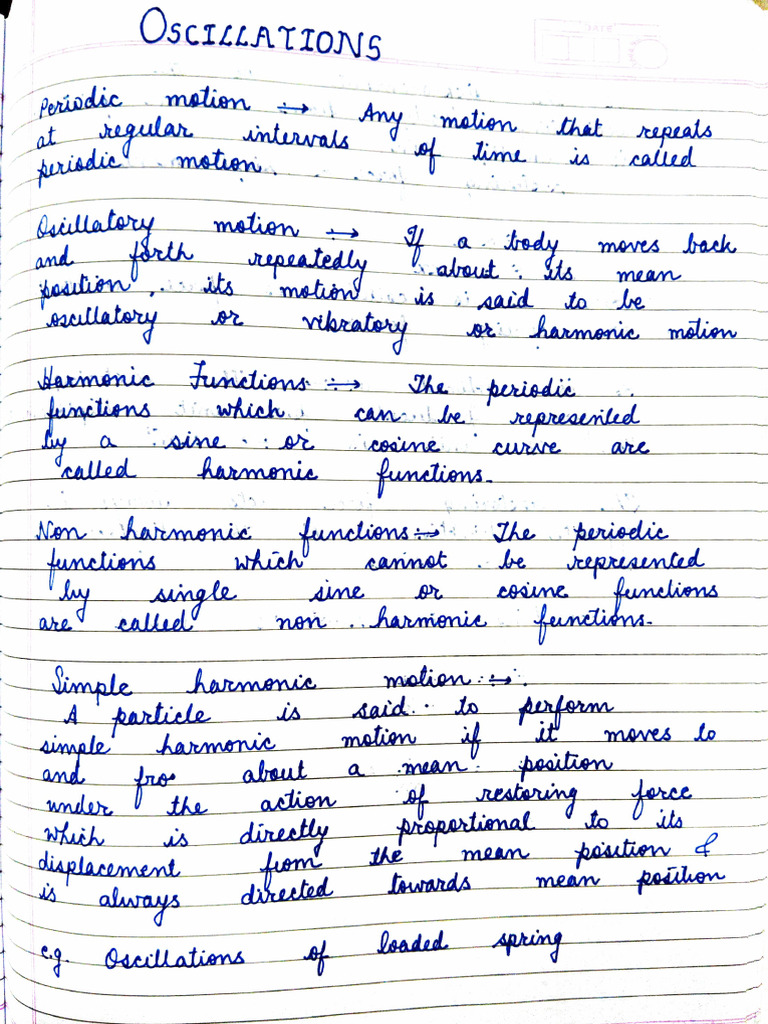 OSCILLATIONS
Periodic motion :→ Any motion that repeats
at regular intervals of time is called
periodic motion.
Oscillatory motion :→ If a body moves back
and forth repeatedly about its mean
position, its motion is said to be
oscillatory or vibratory or harmonic motion
Harmonic Functions :→ The periodic
functions which can be represented
by a sine or cosine curve are
called harmonic functions.
Non harmonic functions :→ The periodic
functions which cannot be represented
by single sine or cosine functions
are called non harmonic functions.
Simple harmonic motion :→
A particle is said to perform
simple harmonic motion if it moves to
and fro about a mean position
under the action of restoring force
which is directly proportional to its
displacement from the mean position &
is always directed towards mean position
e.g. Oscillations of loaded spring